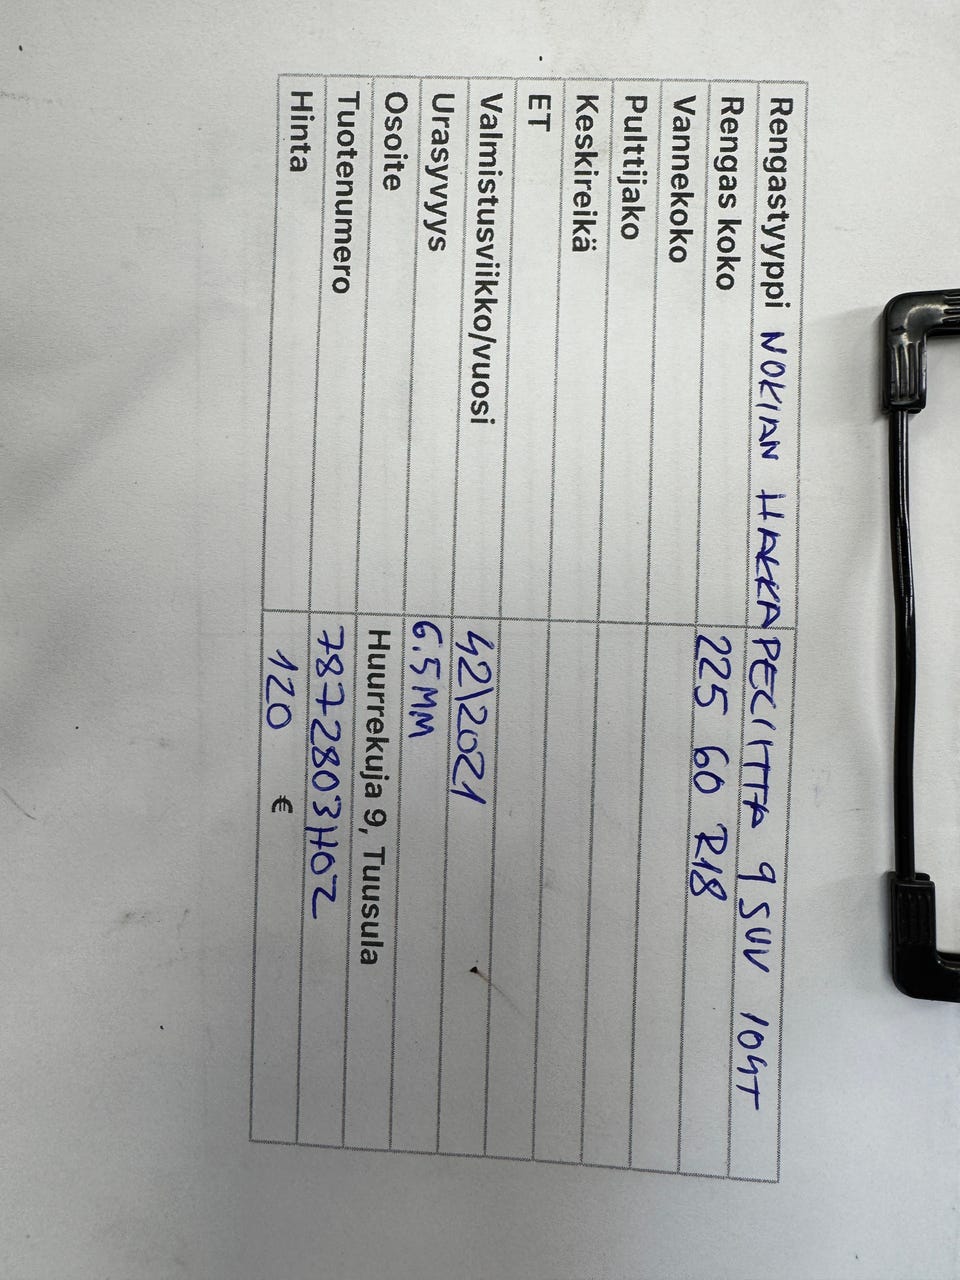 Rengastyyppi NOKIAN HAKKAPELIITTA 9 SUV 104T
Rengas koko 225 60 R18
Vannekoko
Pulttijako
Keskireikä
ET
Valmistusviikko/vuosi 42\2021
Urasyvyys 6.5MM
Osoite Huurrekuja 9, Tuusula
Tuotenumero 7872803HOZ
Hinta 120 €